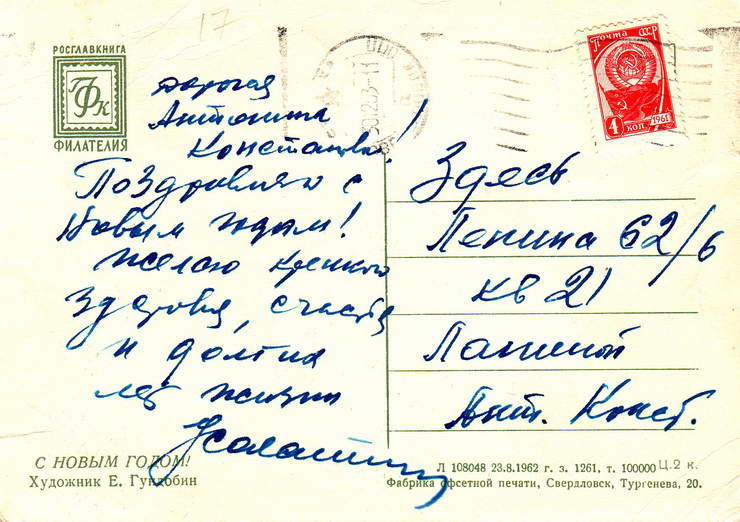 17
РОСГЛАВКНИГА
ФИЛАТЕЛИЯ
дорогая
Антонина
Константин!
Поздравляю с
Новым годом!
желаю крепкого
здоровья, счастья
и долгих
лет жизни
С НОВЫМ ГОДОМ!
Художник Е. Гундобин
ПОЧТА СССР
4 КОП 1961
Здесь
Ленина 62/6
кв 21
Лапиной
Ант. Конст.
Л 108048 23.8.1962 г. з. 1261, т. 100000 Ц.2 к.
Фабрика офсетной печати, Свердловск, Тургенева, 20.